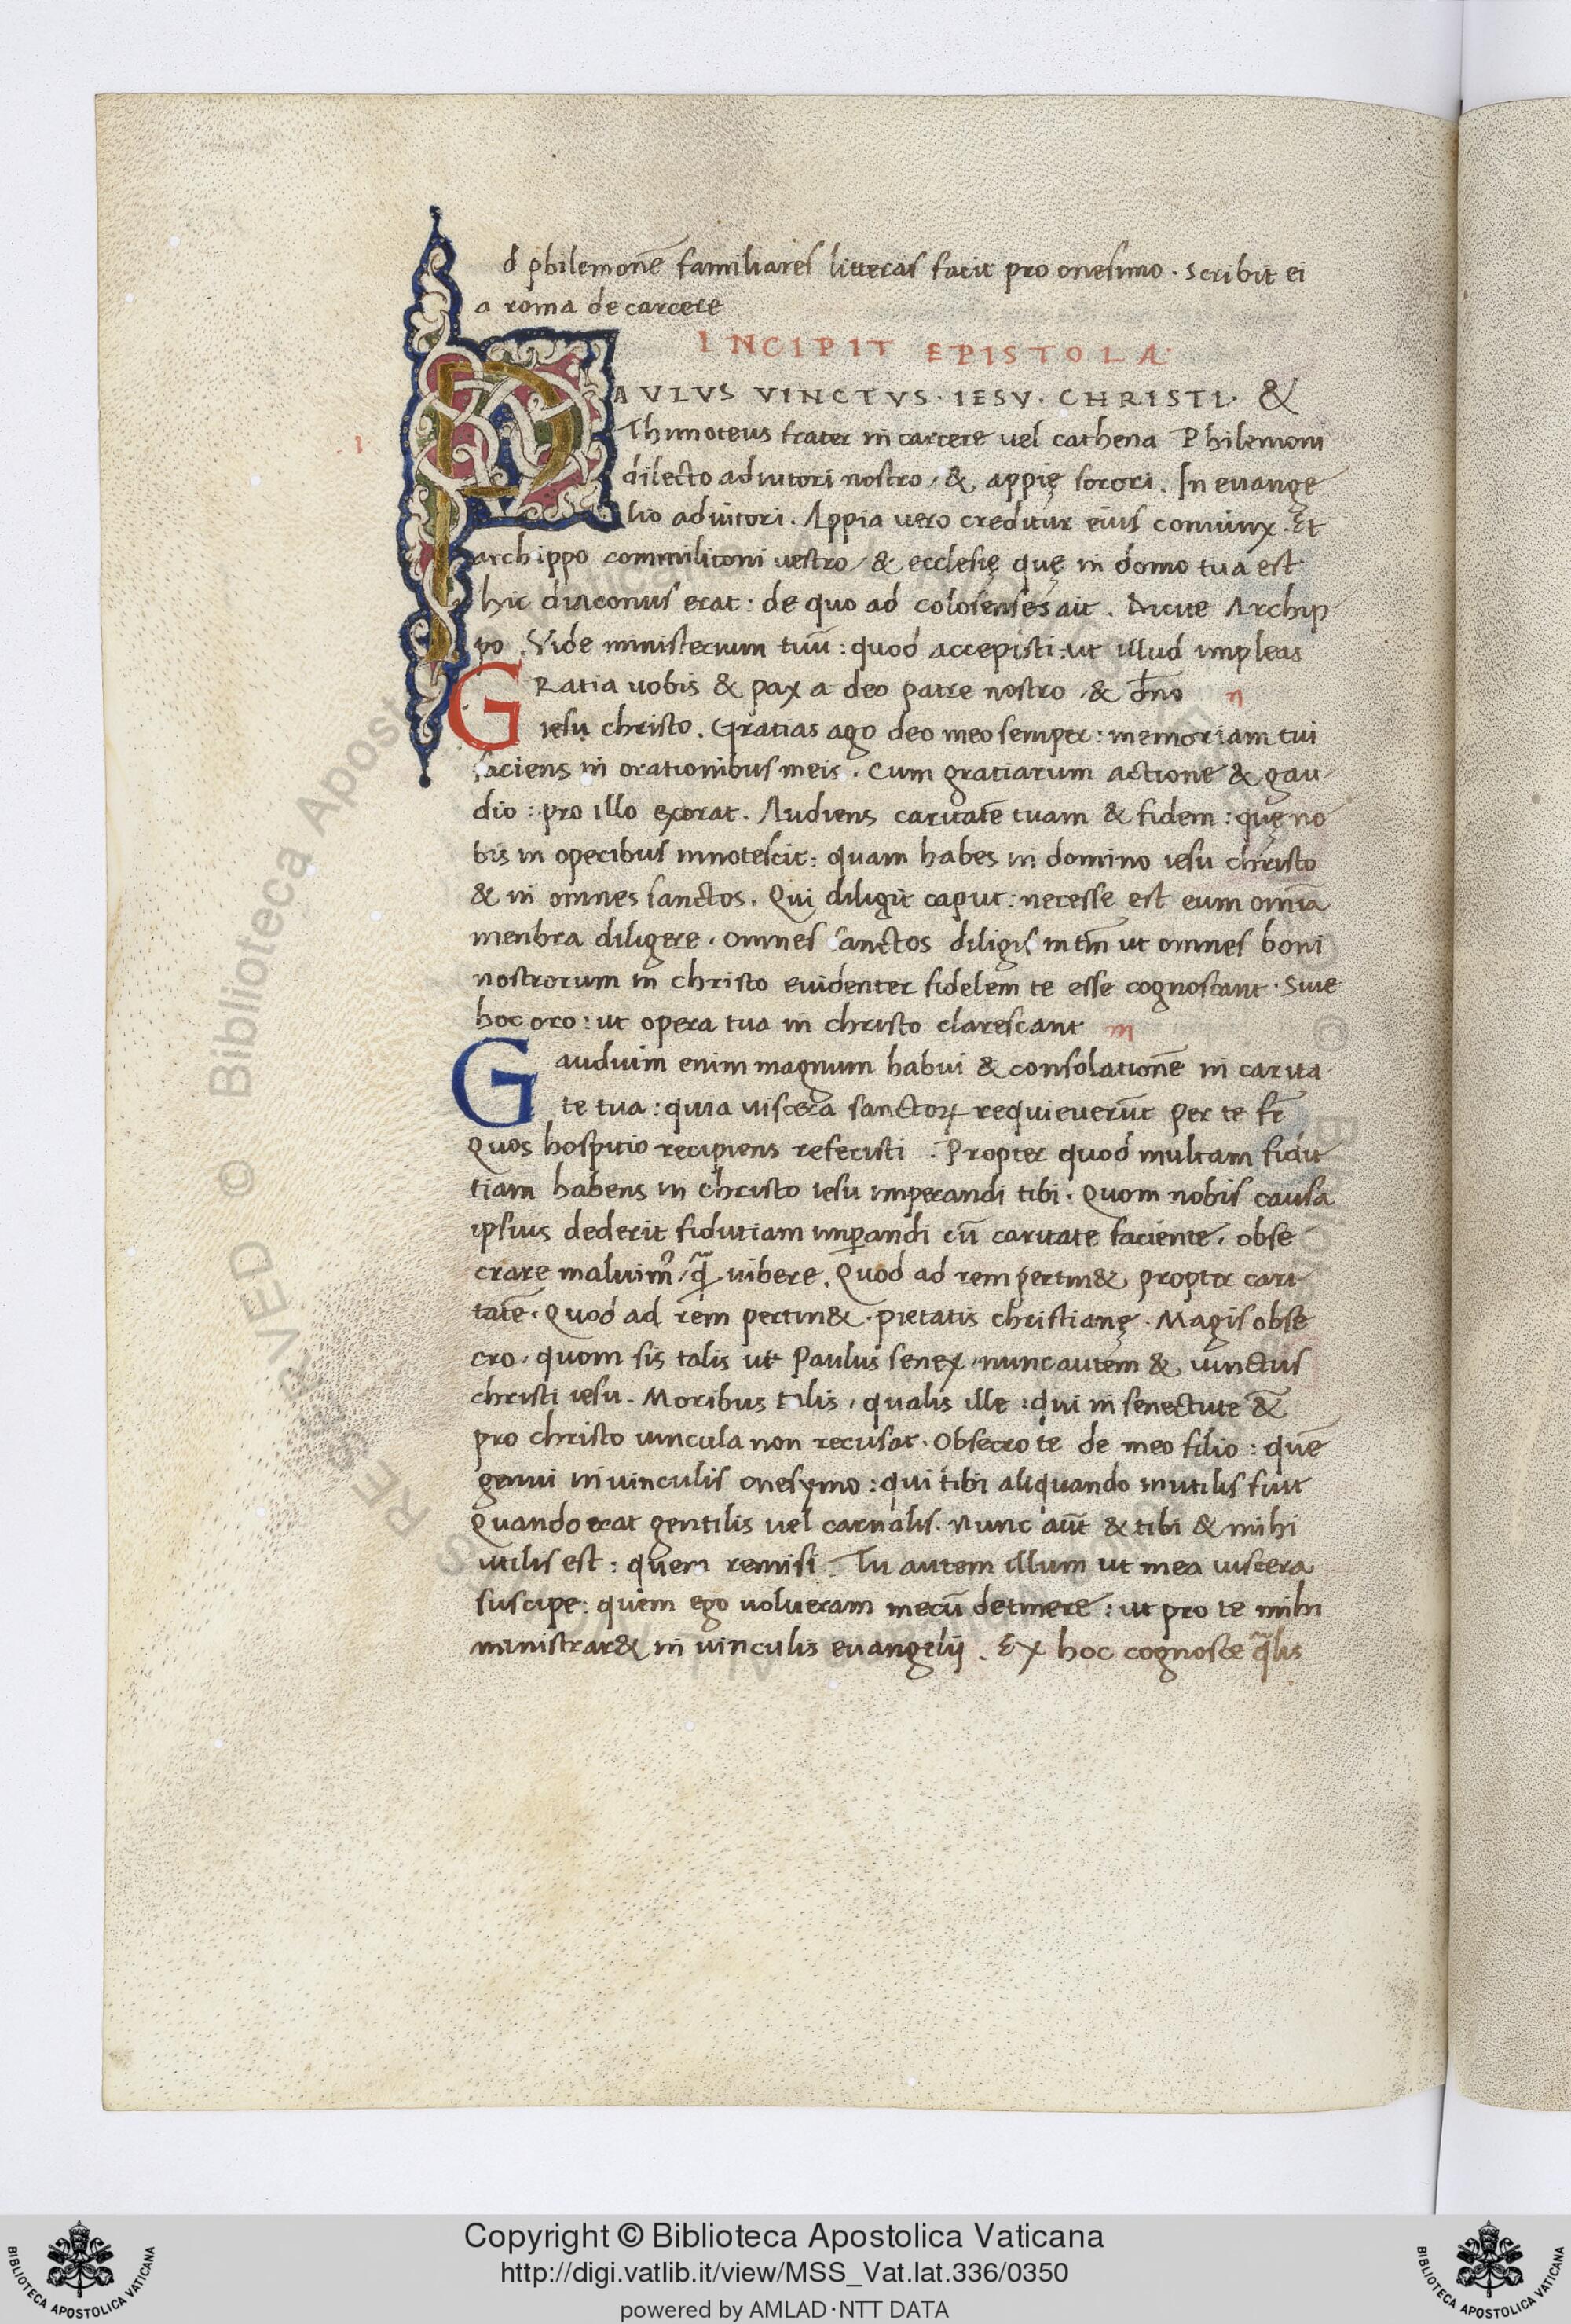 d philemonē familiares litteras facit pro onesimo . scribit ei
a roma de carcere
INCIPIT EPISTOLA
PAULUS VINCTVS · IESV · CHRISTI · &
Thimoteus frater in carcere uel cathena Philemoni
dilecto adiutori nostro / & appię sorori . In euange
lio adiutori . Appia uero creditur eius coniunx . Et
archippo commilitoni uestro / & ecclesię quę in domo tua est
hic diaconus erat : de quo ad colosenses ait . Dicite Archip
po . Vide ministerium tuū : quod accepisti : ut illud impleas
GRatia uobis & pax a deo patre nostro / & dño n
iesu christo . Gratias ago deo meo semper : memoriam tui
faciens in orationibus meis . Cum gratiarum actione & gau
dio : pro illo exorat . Audiens caritatē tuam & fidem : quę no
bis in operibus innotescit : quam habes in domino iesu christo
& in omnes sanctos . Qui diligit caput : necesse est eum omnia
menbra diligere . omnes sanctos diligis in tm̄ ut omnes boni
nostrorum in christo euidenter fidelem te esse cognoscant · Siue
hoc oro : ut opera tua in christo clarescant m
Gaudium enim magnum habui & consolationē in carita
te tua : quia uiscera sanctoꝝ requieuerūt per te fr̄
Quos hospitio recipiens refecisti . Propter quod multam fidu
tiam habens in christo iesu imperandi tibi . Quom nobis causa
ipsius dederit fidutiam imꝑandi cū caritate faciente . obse
crare maluim⁹ / q̄ iubere . Quod ad rem pertin& propter cari
tatē . Quod ad rem pertin& . pietatis christianę . Magis obse
cro . quom sis talis ut Paulus senex / nunc autem & uinctus
christi iesu . Moribus talis , qualis ille : qui in senectute &̄
pro christo uincula non recusat . Obsecro te de meo filio : quē
genui in uinculis onesymo : qui tibi aliquando inutilis fuit
Quando erat gentilis uel carnalis . Nunc aūt & tibi & mihi
utilis est : quem remisi . Tu autem illum ut mea uiscera
suscipe : quem ego uolueram mecū detinere : ut pro te mihi
ministrar& in uinculis euangelij . Ex hoc cognosce q̄lis
Copyright © Biblioteca Apostolica Vaticana
http://digi.vatlib.it/view/MSS_Vat.lat.336/0350
powered by AMLAD·NTT DATA
BIBLIOTECA APOSTOLICA VATICANA
BIBLIOTECA APOSTOLICA VATICANA